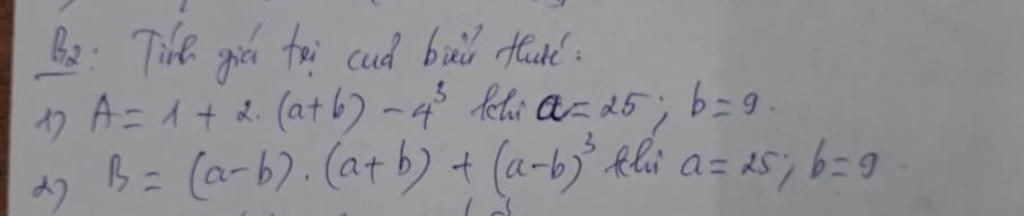 B2: Tính giá trị của biểu thức:
1) A = 1 + 2. (a+b) - 4³ khi a = 25; b = 9.
2) B = (a-b). (a+b) + (a-b)³ khi a = 25; b = 9.